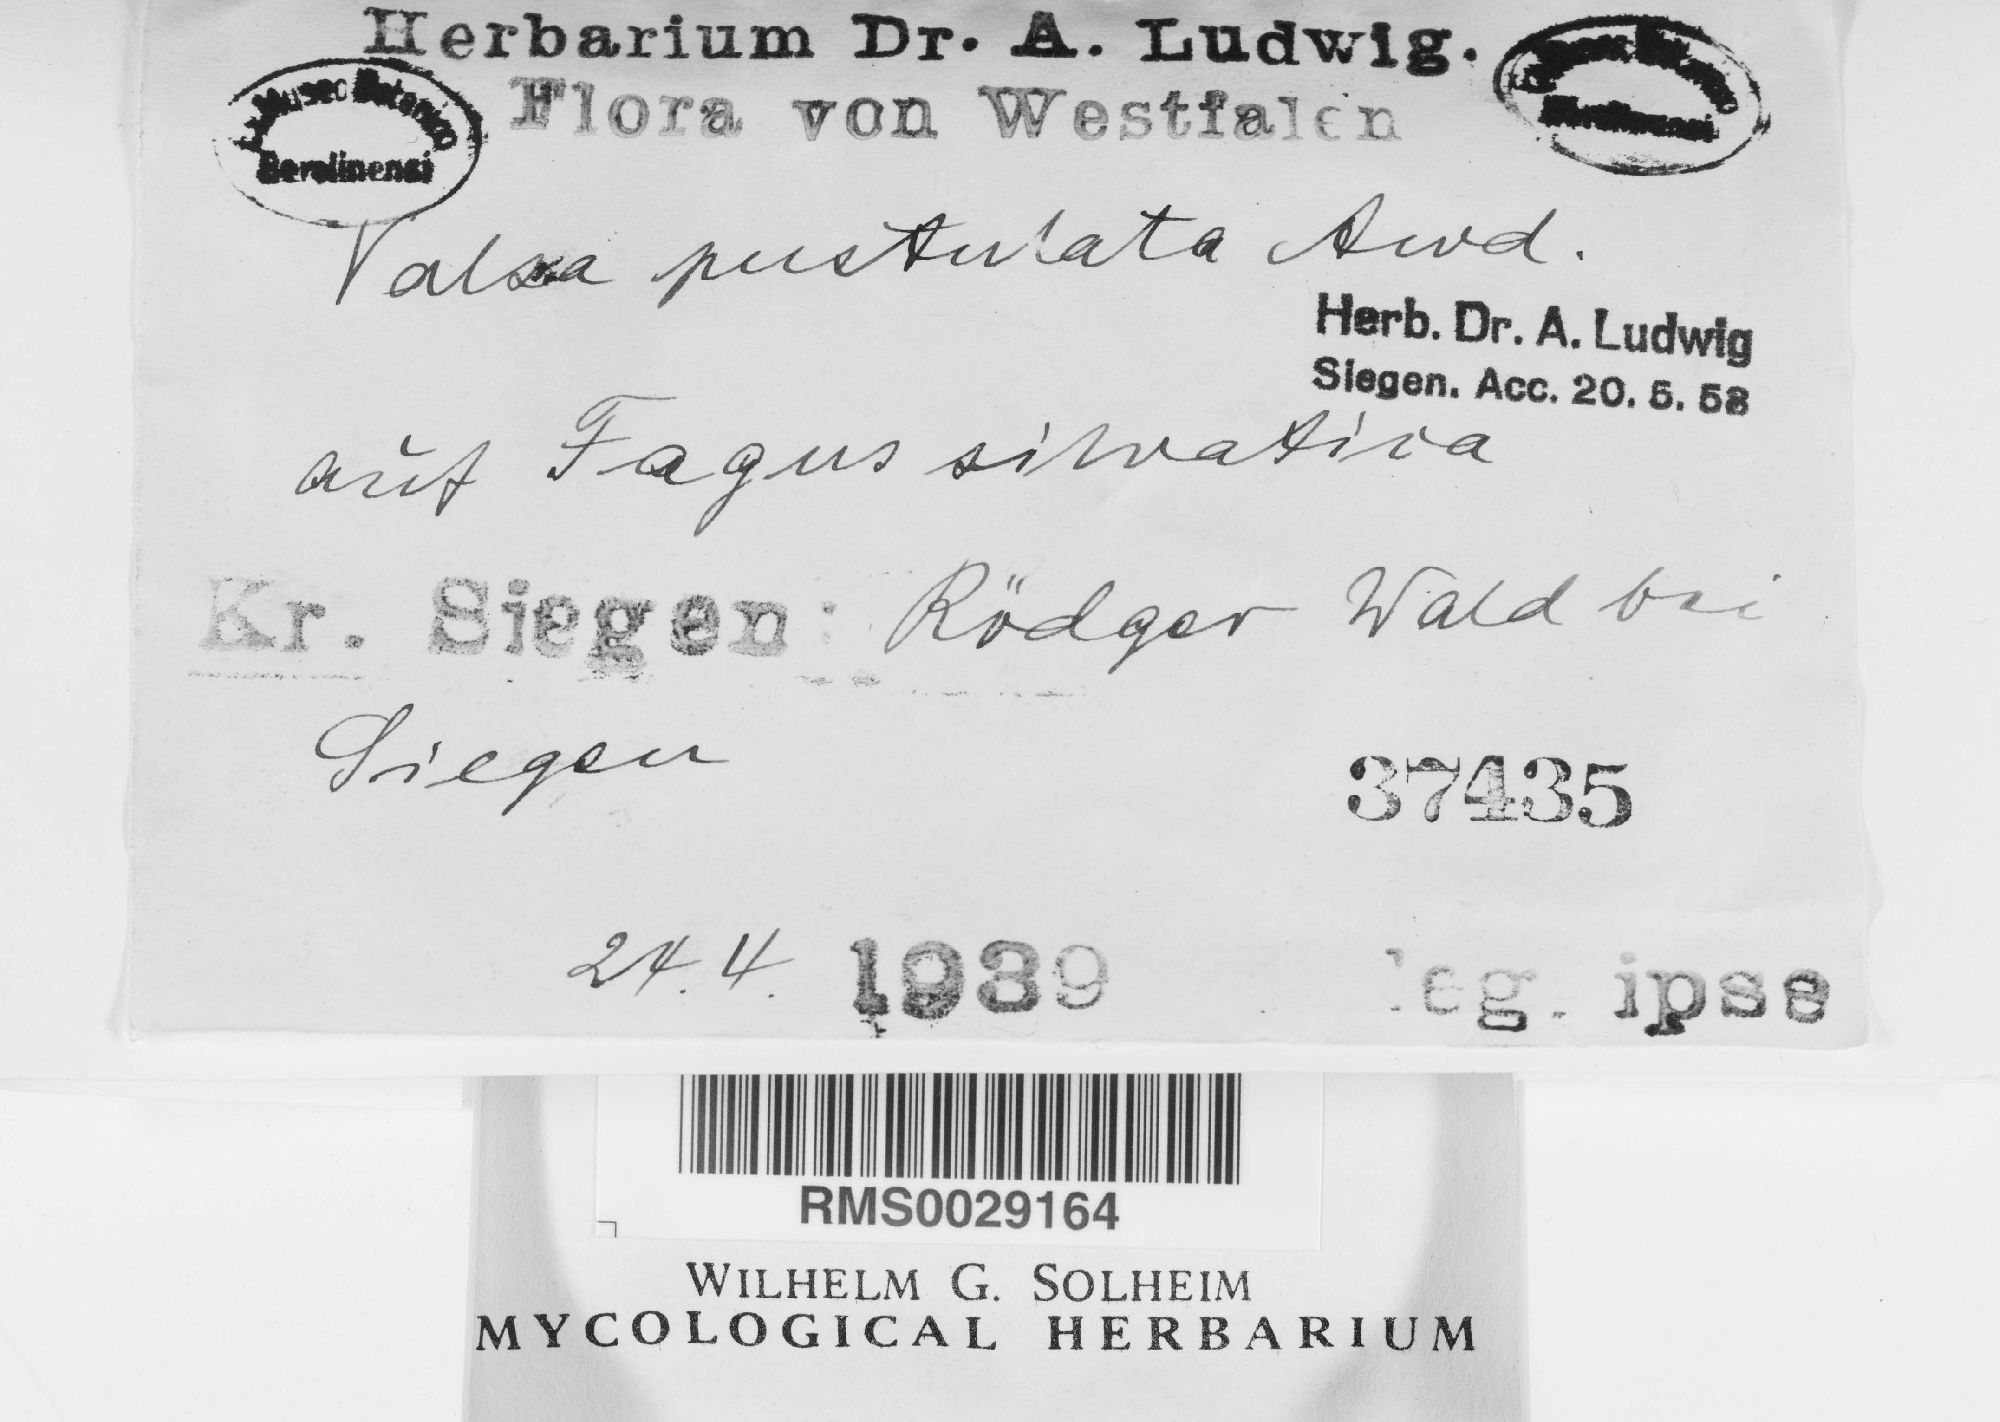 Herbarium Dr. A. Ludwig.
Flora von Westfalen
Ex Museo Botanico
Berolinensi
Ex Museo Botanico
Berolinensi
Valsa pustulata Awd.
Herb. Dr. A. Ludwig
Siegen. Acc. 20. 5. 58
auf Fagus silvatica
Kr. Siegen: Rödger Wald bei
Siegen
37435
24. 4. 1939 leg. ipse
RMS0029164
WILHELM G. SOLHEIM
MYCOLOGICAL HERBARIUM